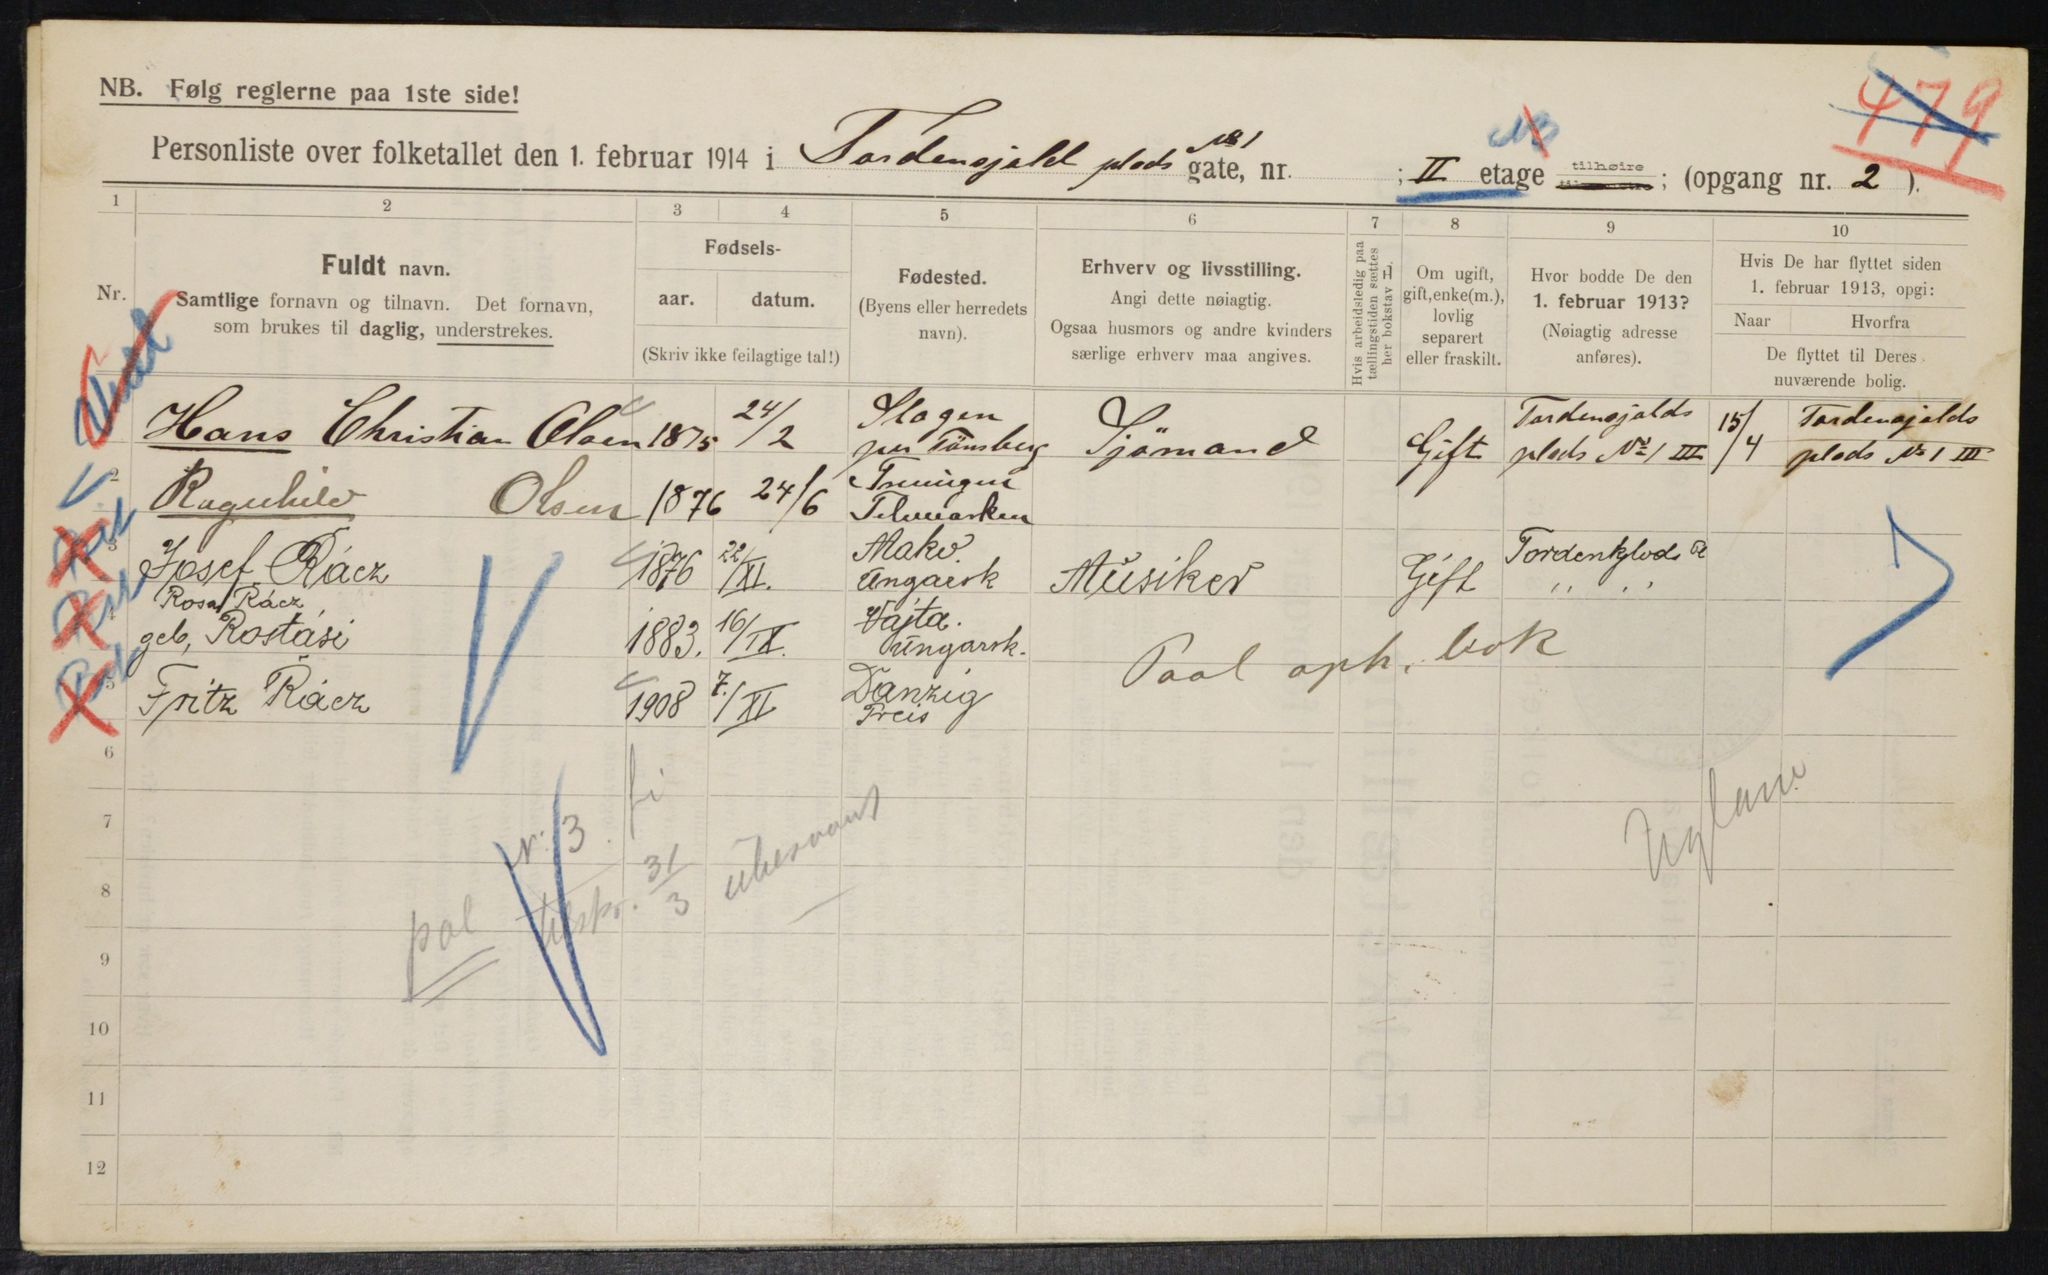 NB. Følg reglerne paa 1ste side!
479
Personliste over folketallet den 1. februar 1914 i Tordensjold plads No 1 gate, nr. ; II etage tilhøire; (opgang nr. 2 ).
1 2 3 4 5 6 7 8 9 10
Nr.
Fuldt navn.
Samtlige fornavn og tilnavn. Det fornavn,
som brukes til daglig, understrekes.
Fødsels-
aar. datum.
(Skriv ikke feilagtige tal!)
Fødested.
(Byens eller herredets
navn).
Erhverv og livsstilling.
Angi dette nøiagtig.
Ogsaa husmors og andre kvinders
særlige erhverv maa angives.
Hvis arbeidsledig paa
tællingstiden sættes
her bokstav L.
Om ugift,
gift, enke(m.),
lovlig
separert
eller fraskilt.
Hvor bodde De den
1. februar 1913?
(Nøiagtig adresse
anføres).
Hvis De har flyttet siden
1. februar 1913, opgi:
Naar Hvorfra
De flyttet til Deres
nuværende bolig.
Hans Christian Olsen 1875 24/2 Slagen Sjömand Gift Tordensjolds 15/4 Tordensjolds
per Tönsberg plads No 1 III plads No 1 III
2 Ragnhild Olsen 1876 24/6
Telemarken
3 Josef Rácz 1876 22/XI. Mako. Müsiker Gift
Ungarsk " "
Rosa Rácz
4 geb, Rostási 1883. 16/IX. Vajta.
Ungarsk.
Paal oph. bok
5 Fritz Rácz 1908 7./XI Danzig
Preis
6
7
nr. 3
8
31/3
pol
9
10
11
12